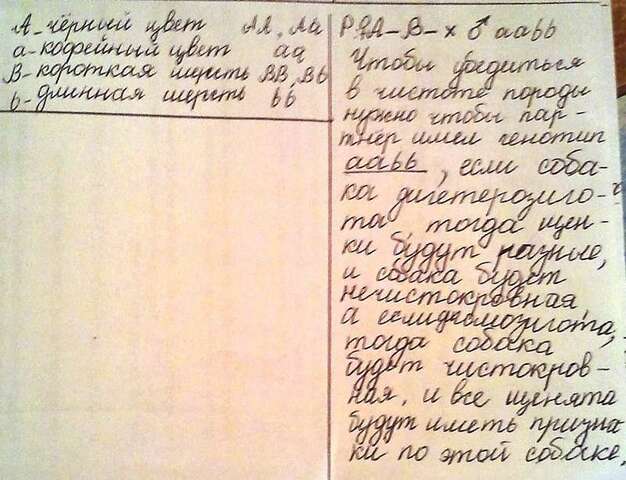 А-чёрный цвет АА, Аа
а-кофейный цвет аа
В-короткая шерсть ВВ, Вb
b-длинная шерсть bb
Р ♀А-В- × ♂ ааbb
Чтобы убедиться
в чистоте породы
нужно чтобы пар-
тнёр имел генотип
ааbb, если соба-
ка дигетерозиго-
та тогда щен-
ки будут разные,
и собака будет
нечистокровная
а если дигомозигота,
тогда собака
будет чистокров-
ная, и все щенята
будут иметь призна
ки по этой собаке.